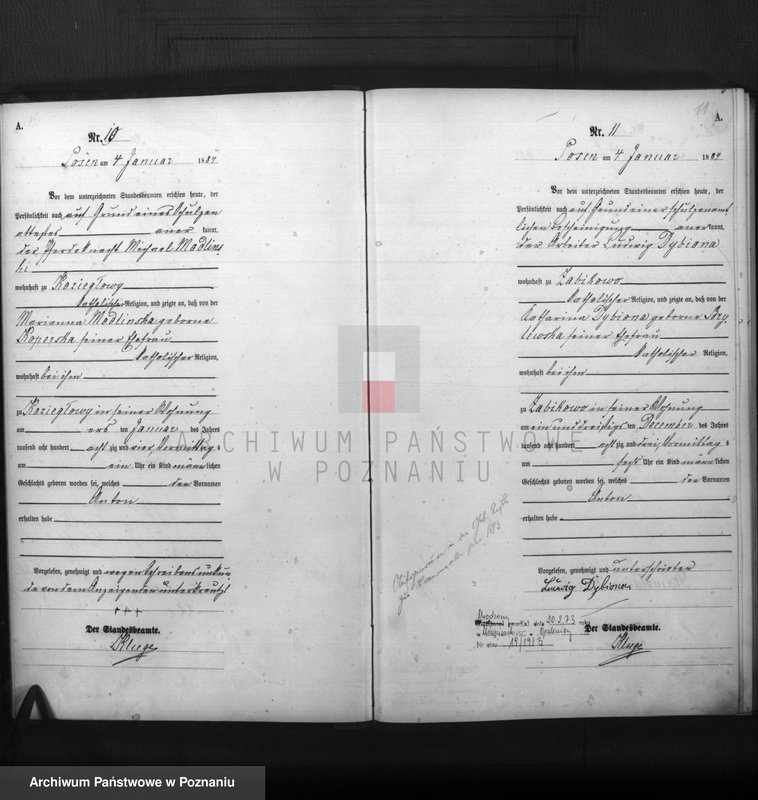 A.
Nr. 10
Posen am 4 Januar 1884
Vor dem unterzeichneten Standesbeamten erschien heute, der
Persönlichkeit nach auf Grund eines Schulzen
attestes aner kannt,
der Pferdeknecht Michael Madlins
ki
wohnhaft zu Koziegłowy
katholischer Religion, und zeigte an, daß von der
Marianna Madlinska geborne
Koperska seiner Ehefrau
katholischer Religion,
wohnhaft bei ihm
zu Koziegłowy in seiner Wohnung
am ers ten Januar des Jahres
tausend acht hundert acht zig und vier Vormittag s
um ein Uhr ein Kind männ lichen
Geschlechts geboren worden sei, welches den Vornamen
Anton
erhalten habe
Vorgelesen, genehmigt und wegen Schreibensunkun
de von dem Anzeigenden unterkreuzt
+++
Der Standesbeamte.
Kluge
11
A.
Nr. 11
Posen am 4 Januar 1884
Vor dem unterzeichneten Standesbeamten erschien heute, der
Persönlichkeit nach auf Grund einer schulzenamt
lichen Bescheinigung aner kannt,
der Arbeiter Ludwig Dybiona
wohnhaft zu Zabikowo
katholischer Religion, und zeigte an, daß von der
Katharina Dybiona geborne
seiner Ehefrau
katholischer Religion,
wohnhaft bei ihm
zu Zabikowo in seiner Wohnung
am ein und dreißigs ten December des Jahres
tausend acht hundert acht zig und drei, Vormittag s
um sechs Uhr ein Kind männ lichen
Geschlechts geboren worden sei, welches den Vornamen
Anton
erhalten habe
Vorgelesen, genehmigt und unterschrieben
Ludwig Dybiona
Der Standesbeamte.
Kluge
dnia 20.2.73
Nr aktu 19/1973
ARCHIWUM PAŃSTWOWE
W POZNANIU
Archiwum Państwowe w Poznaniu